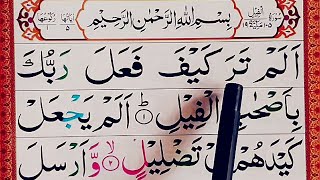 بِسْمِ اللّٰهِ الرَّحْمٰنِ الرَّحِيْمِ
اَلَمْ تَرَ كَيْفَ فَعَلَ رَبُّكَ
بِاَصْحٰبِ الْفِيْلِ ۝۱ اَلَمْ يَجْعَلْ
كَيْدَهُمْ تَضْلِيْلٍ ۝۲ وَّاَرْسَلَ